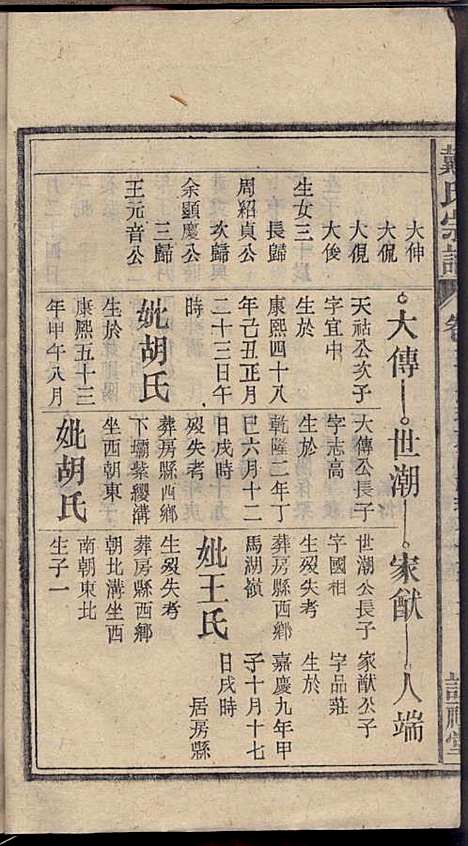 大伸
大侃
大俔
大俊
生女三
長歸
周紹貞公
次歸
余顯慶公
三歸
王元音公
大傳
天祜公次子
字宜中
生於
康熙四十八
年己丑正月
二十三日午
時
妣胡氏
生於
康熙五十三
年甲午八月
世潮
大傳公長子
字志高
生於
乾隆二年丁
巳六月十二
日戌時
歿失考
葬房縣西鄉
下壩紫纓溝
坐西朝東
妣胡氏
家猷
世潮公長子
字國相
生歿失考
葬房縣西鄉
馬湖嶺
妣王氏
生歿失考
葬房縣西鄉
朝北溝坐西
南朝東北
生子一
人端
家猷公子
字品莊
生於
嘉慶九年甲
子十月十七
日戌時
居房縣
氏宗譜
卷